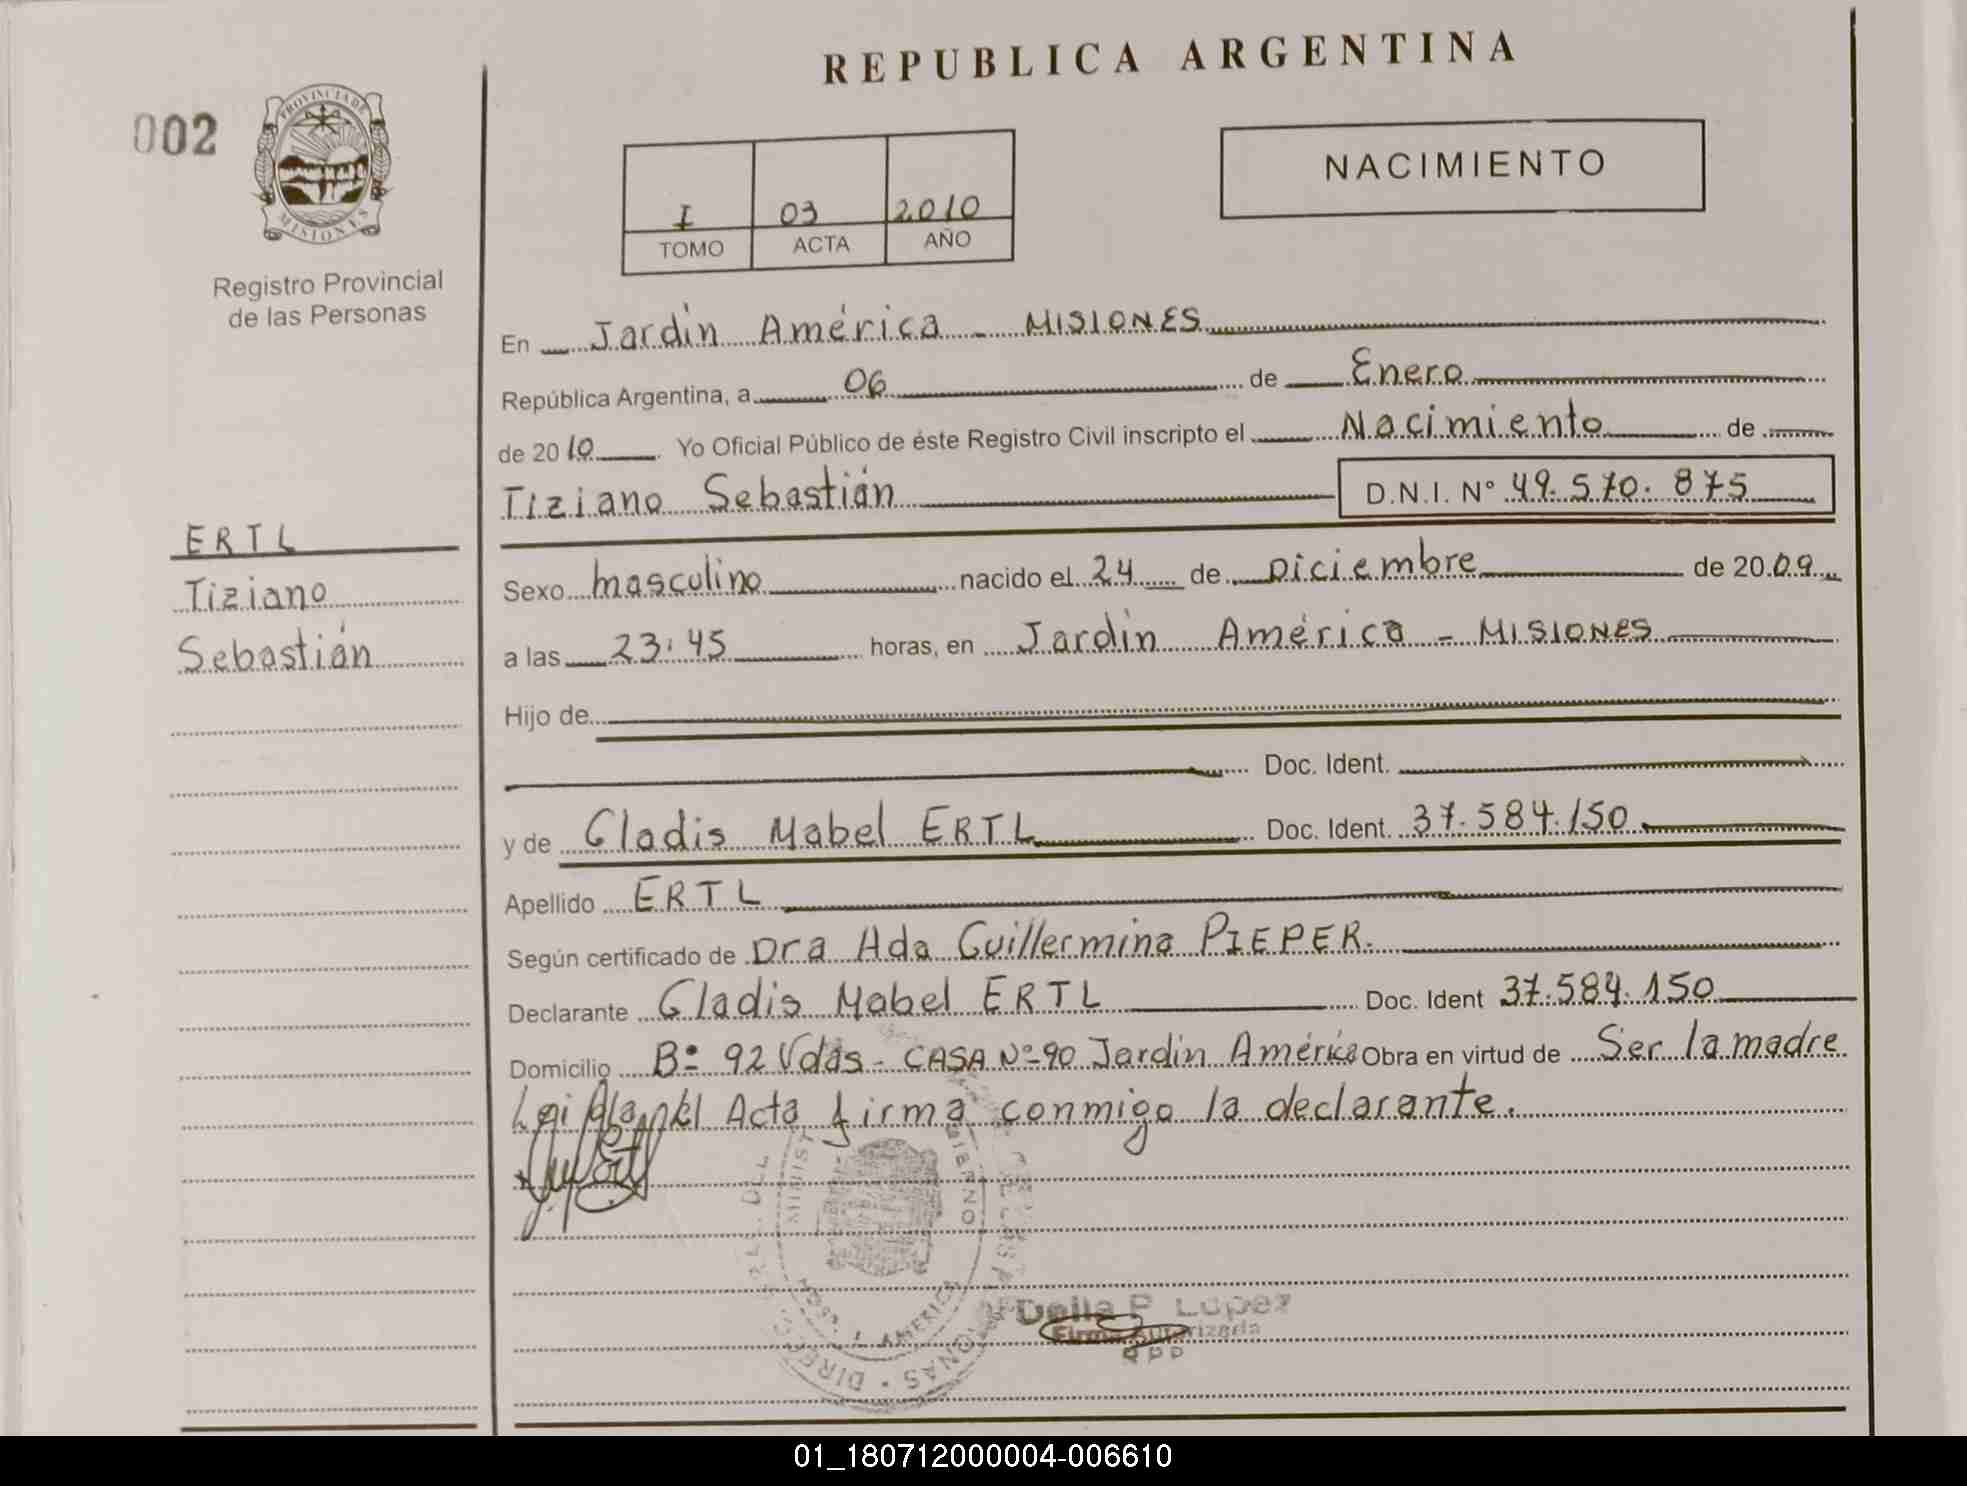 REPUBLICA ARGENTINA
002
PROVINCIA DE
MISIONES
Registro Provincial
de las Personas
NACIMIENTO
I 03 2010
TOMO ACTA AÑO
En Jardín América - MISIONES
República Argentina, a 06 de Enero
de 2010 Yo Oficial Público de éste Registro Civil inscripto el Nacimiento de
Tiziano Sebastián D.N.I. N° 49.570.875
ERTL
Tiziano
Sebastián
Sexo masculino nacido el 24 de Diciembre de 2009
a las 23:45 horas, en Jardín América - MISIONES
Hijo de
Doc. Ident.
y de Gladis Mabel ERTL Doc. Ident. 37.584.150
Apellido ERTL
Según certificado de Dra Ada Guillermina PIEPER.
Declarante Gladis Mabel ERTL Doc. Ident 37.584.150
Domicilio B° 92 Vdas - CASA N°90 Jardín América Obra en virtud de Ser la madre
Leí Acta firma conmigo la declarante.
AMERICA
Delia P. Lopez
Firma Autorizada
RPP
01_180712000004-006610